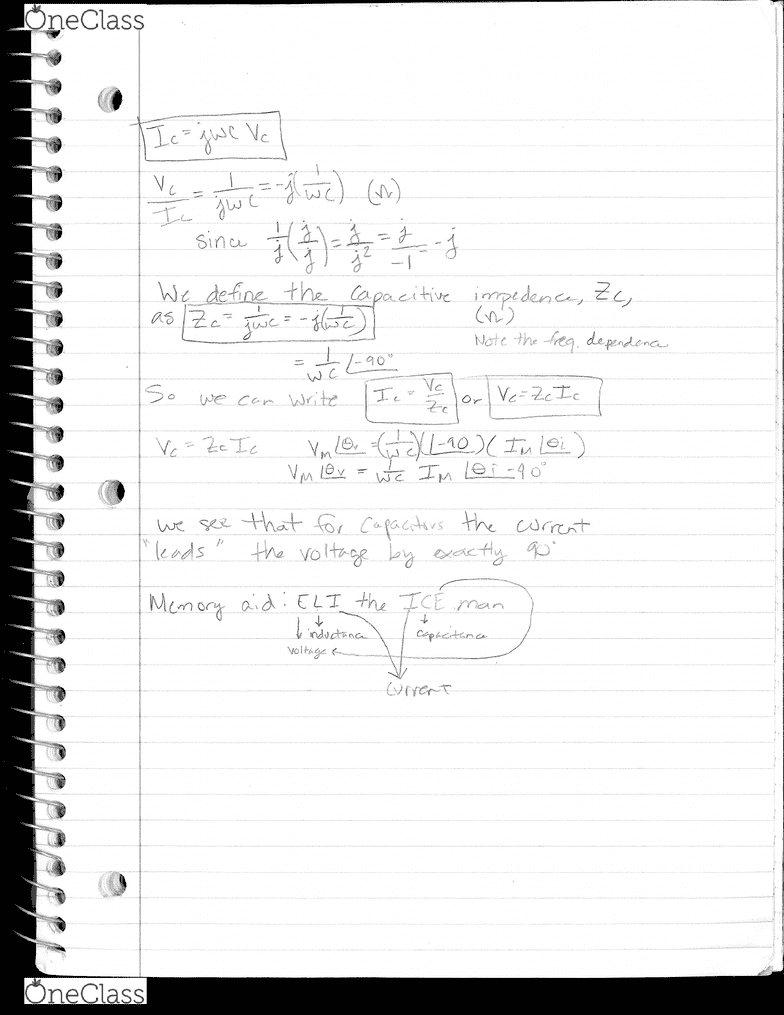 OneClass
Ic = jwc Vc
Vc/Ic = 1/jwc = -j(1/wc) (Ω)
since 1/j (j/j) = j/j² = j/-1 = -j
We define the capacitive impedence, Zc,
as Zc = 1/jwc = -j(1/wc) (Ω)
Note the freq. dependence
= 1/wc ∠-90°
So we can write Ic = Vc/Zc or Vc = ZcIc
Vc = ZcIc VM∠θv = (1/wc)(∠-90)(IM∠θi)
VM∠θv = 1/wc IM ∠θi-90°
we see that for capacitors the current
"leads" the voltage by exactly 90°
Memory aid: ELI the ICE man
inductance capacitance
voltage
current
OneClass